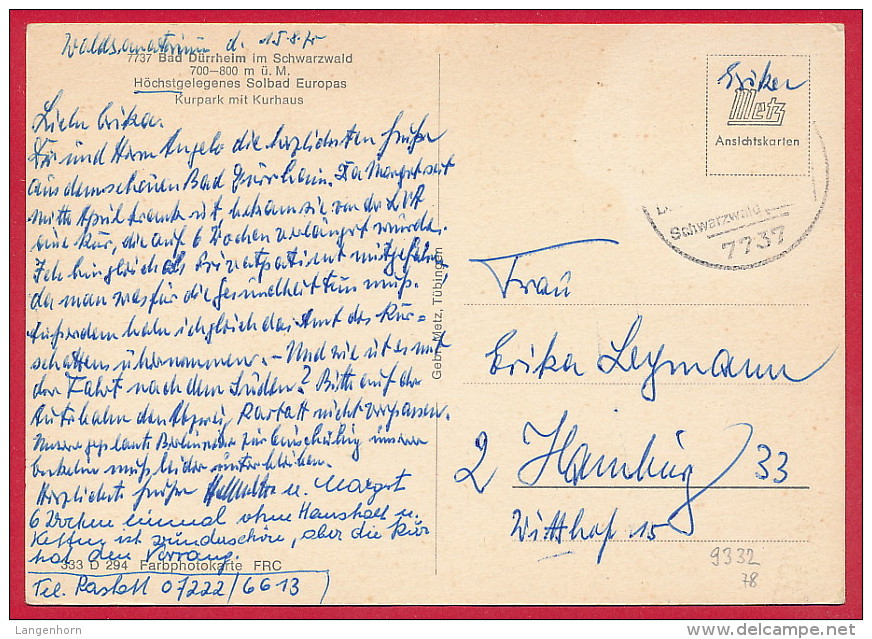 Waldsanatorium d. 15.8.75
7737 Bad Dürrheim im Schwarzwald
700-800 m ü. M.
Höchstgelegenes Solbad Europas
Kurpark mit Kurhaus
Liebe Erika.
Dir und Herrn Angelo die herzlichsten Grüße
aus dem schönen Bad Dürrheim. Da Margot seit
Mitte April krank ist, bekam sie von der LVA
eine Kur, die auf 6 Wochen verlängert wurde.
Ich bin gleich als Privatpatient mitgefahren
da man was für die Gesundheit tun muß.
Außerdem habe ich gleich das Amt des Kur=
schattens übernommen. - Und wie ist es mit
der Fahrt nach dem Süden? Bitte auf der
Autobahn den Abzweig Rastatt nicht verpassen.
Unsere geplante
muß leider unterbleiben.
Herzlichste Grüße u. Margot
6 Wochen einmal ohne Haushalt u.
ist wunderschön, aber die Kur
hat den Vorrang.
333 D 294 Farbphotokarte FRC
Tel. Rastatt 07222/6613
Gebr. Metz, Tübingen
Metz
Ansichtskarten
Schwarzwald
7737
Frau
Erika Leymann
2 Hamburg 33
Witthof 15
9332
78
Langenhorn
delcampe.net